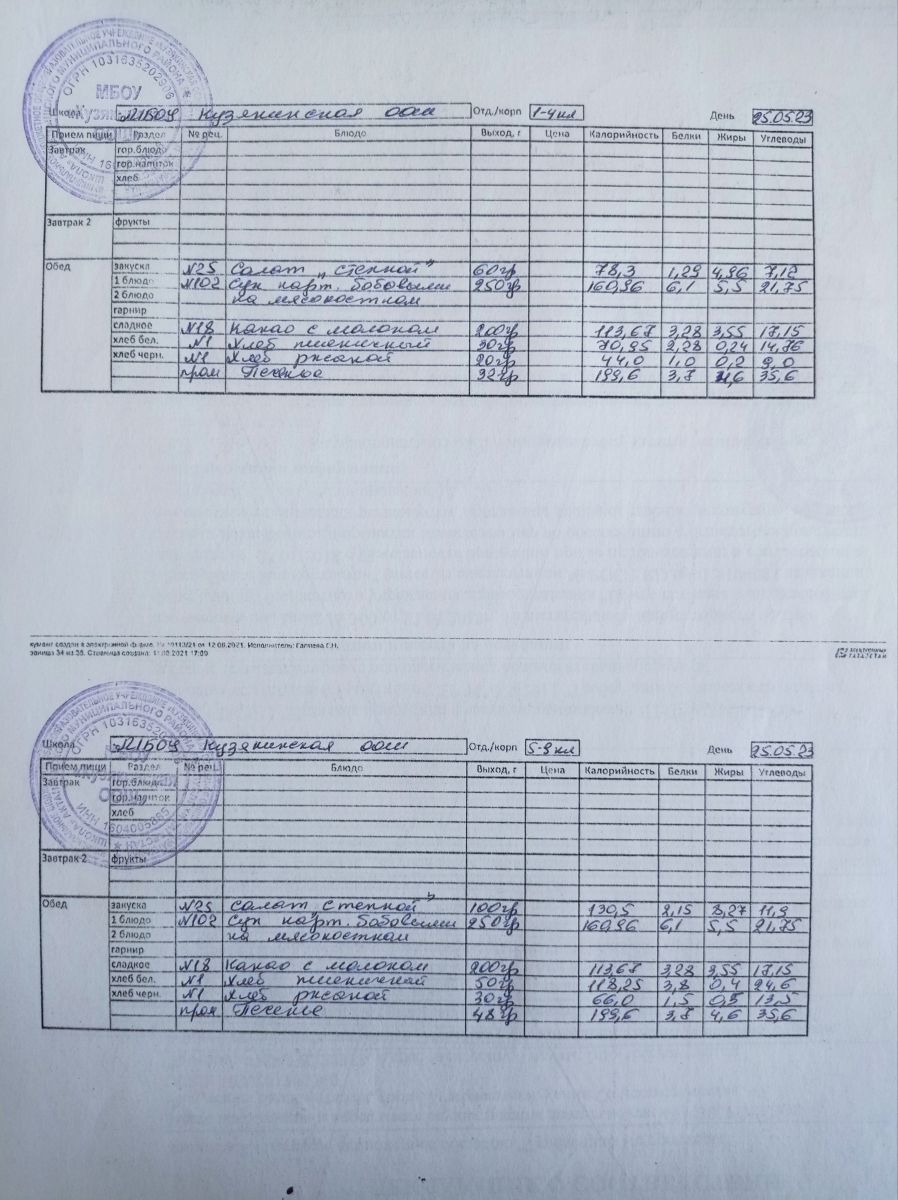 МБОУ
ОГРН 1031635202906
Школа МБОУ Кузякинская оош Отд./корп 1-4 кл День 25.05.23
Прием пищи Раздел № рец. Блюдо Выход, г Цена Калорийность Белки Жиры Углеводы
Завтрак гор.блюдо
гор.напиток
хлеб
Завтрак 2 фрукты
Обед закуска №25 Салат „Степной" 60гр 78,3 1,29 4,96 7,12
1 блюдо №102 Суп карт. бобовыми 250гр 160,96 6,1 5,5 21,75
2 блюдо на мясокостном
гарнир
сладкое №18 Какао с молоком 200гр 113,67 3,28 3,55 17,15
хлеб бел. №1 Хлеб пшеничный 30гр 70,95 2,28 0,24 14,76
хлеб черн. №1 Хлеб ржаной 20гр 44,0 1,0 0,2 9,0
пром Печенье 32гр 199,6 3,7 4,6 35,6
кумент создан в электронной форме. № 10113/21 от 12.08.2021. Исполнитель: Галиева Г.Н.
раница 34 из 38. Страница создана: 11.08.2021 17:09
ЭЛЕКТРОННЫЙ
ТАТАРСТАН
Школа МБОУ Кузякинская оош Отд./корп 5-9 кл День 25.05.23
Прием пищи Раздел № рец. Блюдо Выход, г Цена Калорийность Белки Жиры Углеводы
Завтрак гор.блюдо
гор.напиток
хлеб
ИНН 1604005885
Завтрак 2 фрукты
Обед закуска №25 Салат „Степной" 100гр 130,5 2,15 8,27 11,9
1 блюдо №102 Суп карт. бобовыми 250гр 160,96 6,1 5,5 21,75
2 блюдо на мясокостном
гарнир
сладкое №18 Какао с молоком 200гр 113,67 3,28 3,55 17,15
хлеб бел. №1 Хлеб пшеничный 50гр 118,25 3,8 0,4 24,6
хлеб черн. №1 Хлеб ржаной 30гр 66,0 1,5 0,3 13,5
пром Печенье 48гр 199,6 3,7 4,6 35,6